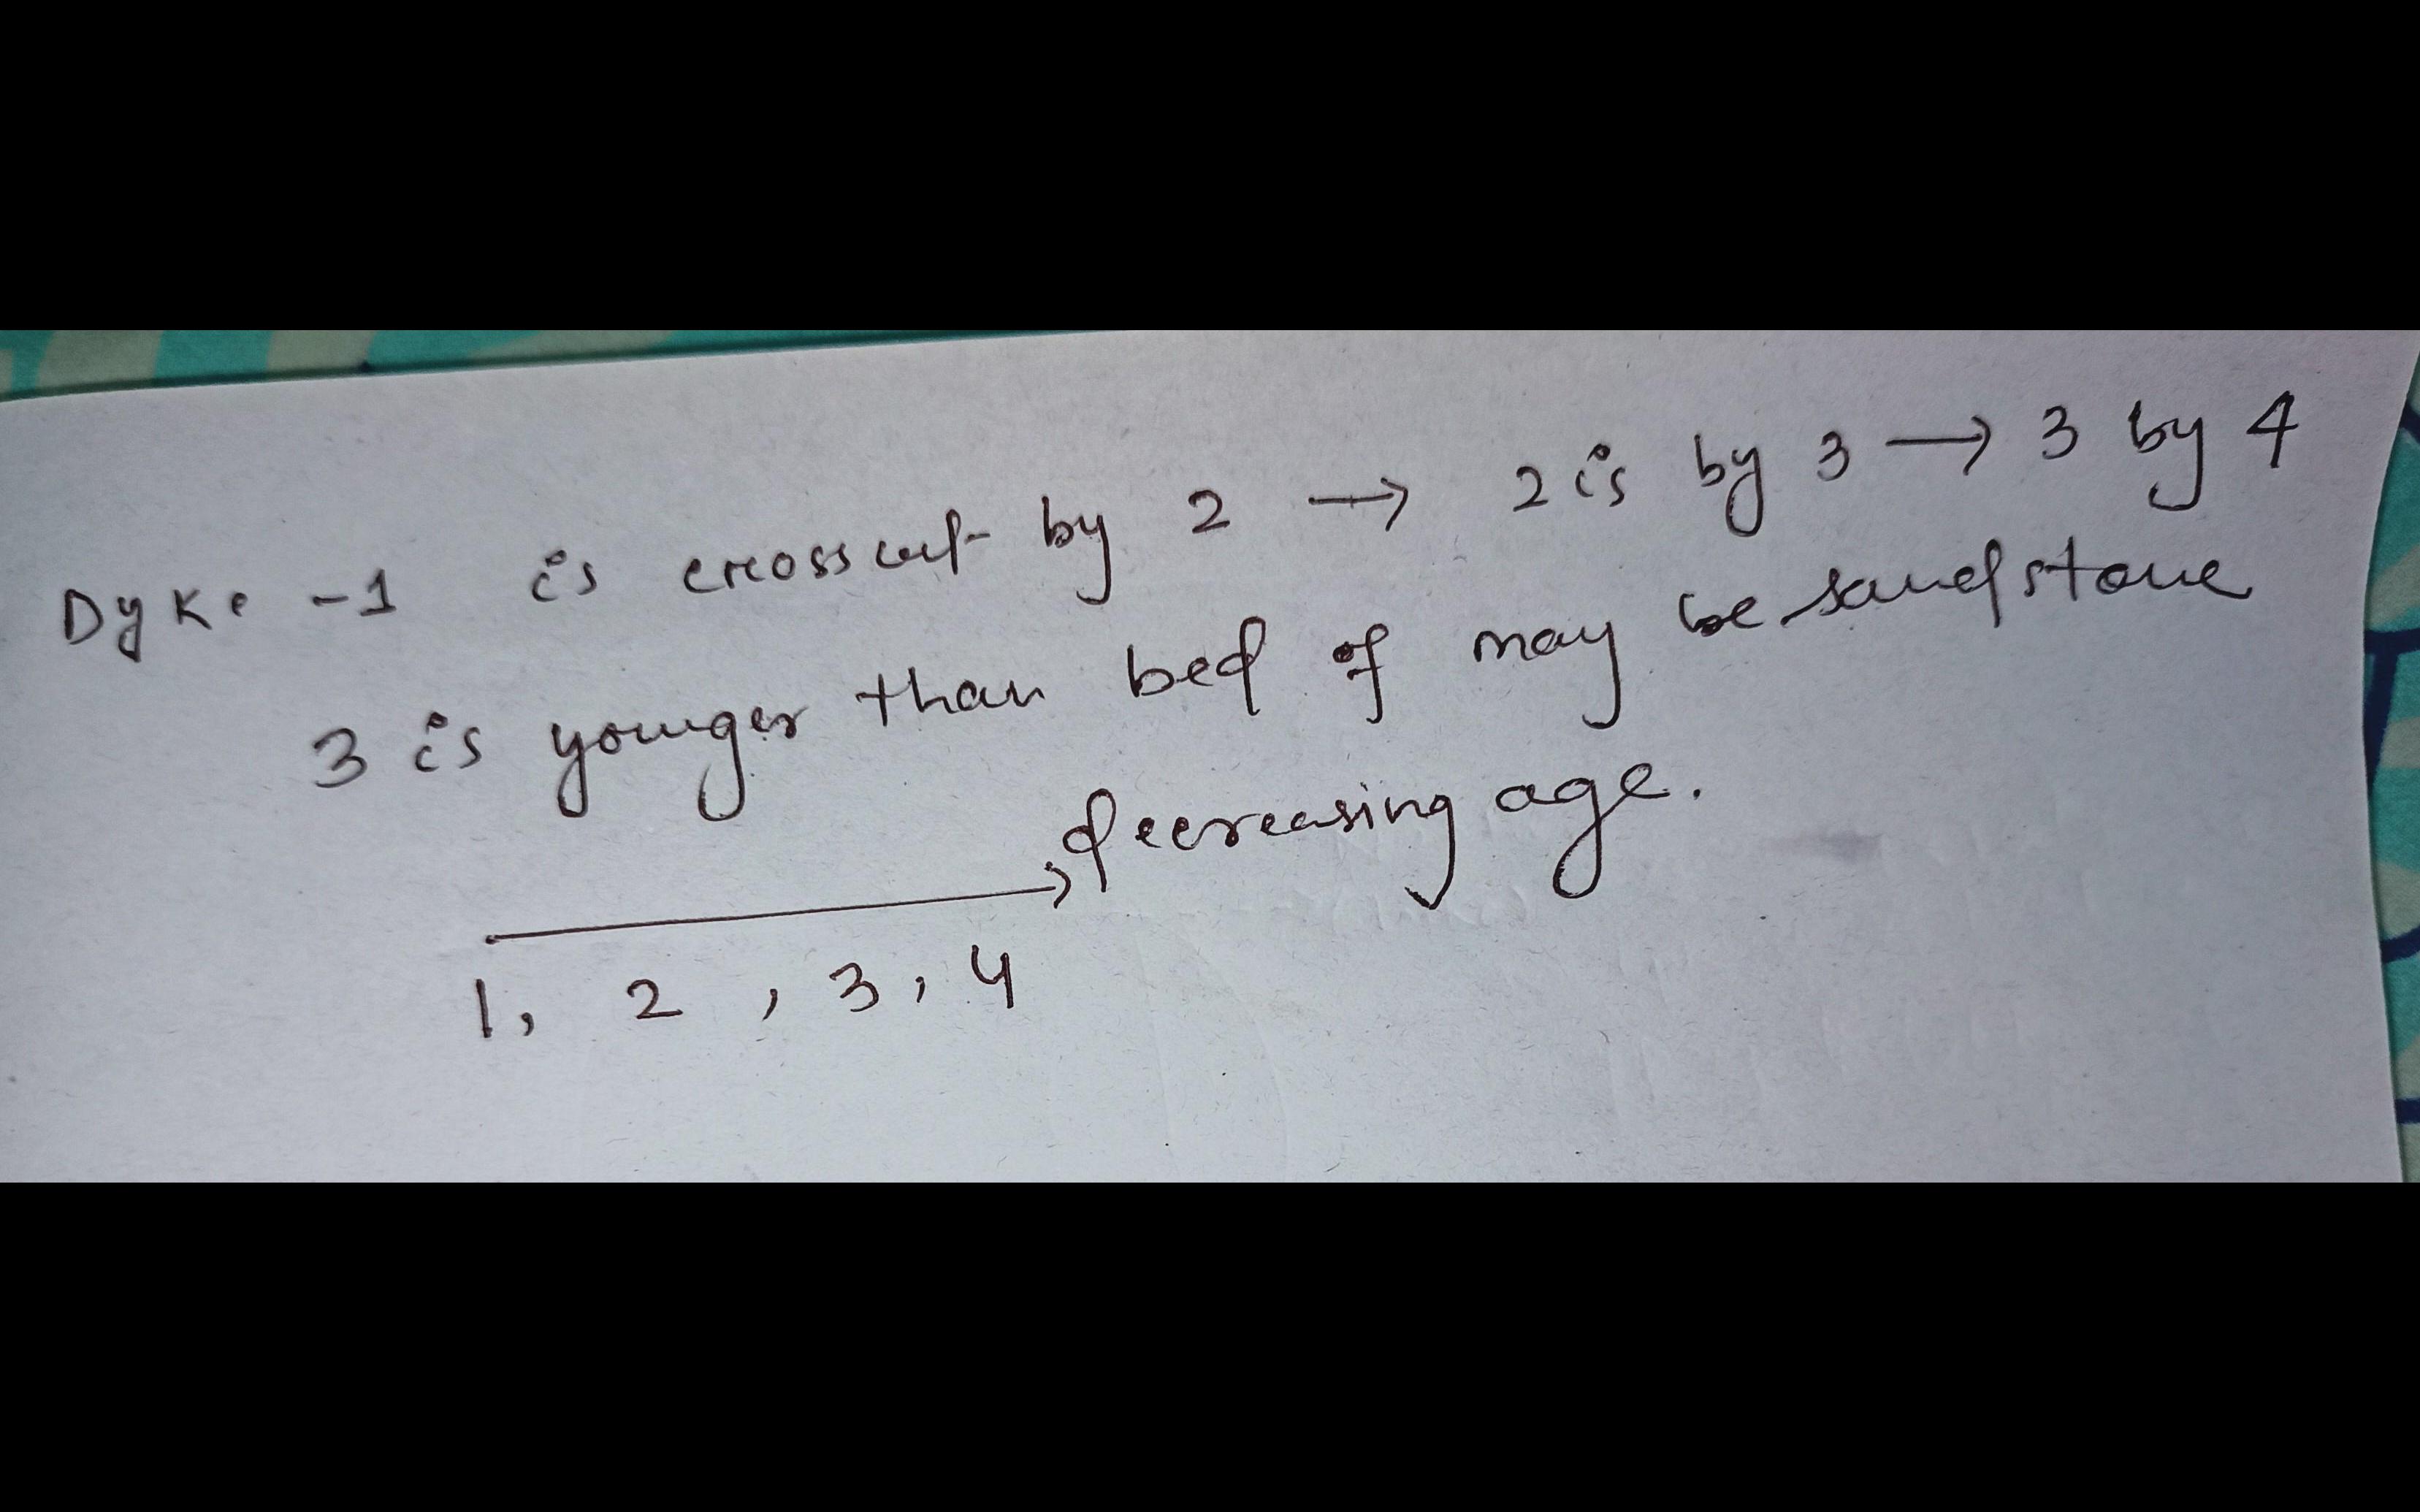 Dyke -1 is crosscut by 2 → 2 is by 3 → 3 by 4
3 is younger than bed of may be sandstone
→ decreasing age.
1, 2, 3, 4